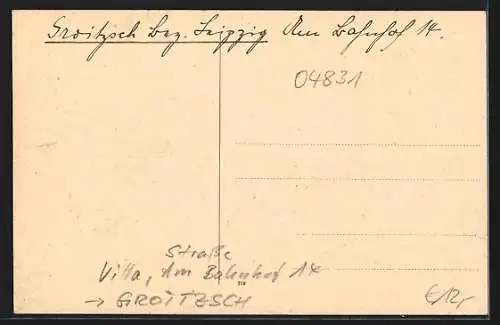 Groitzsch Bez. Leipzig Am Bahnhof 14.
04831
Straße
Villa, Am Bahnhof 14
→ GROITZSCH
€12,-